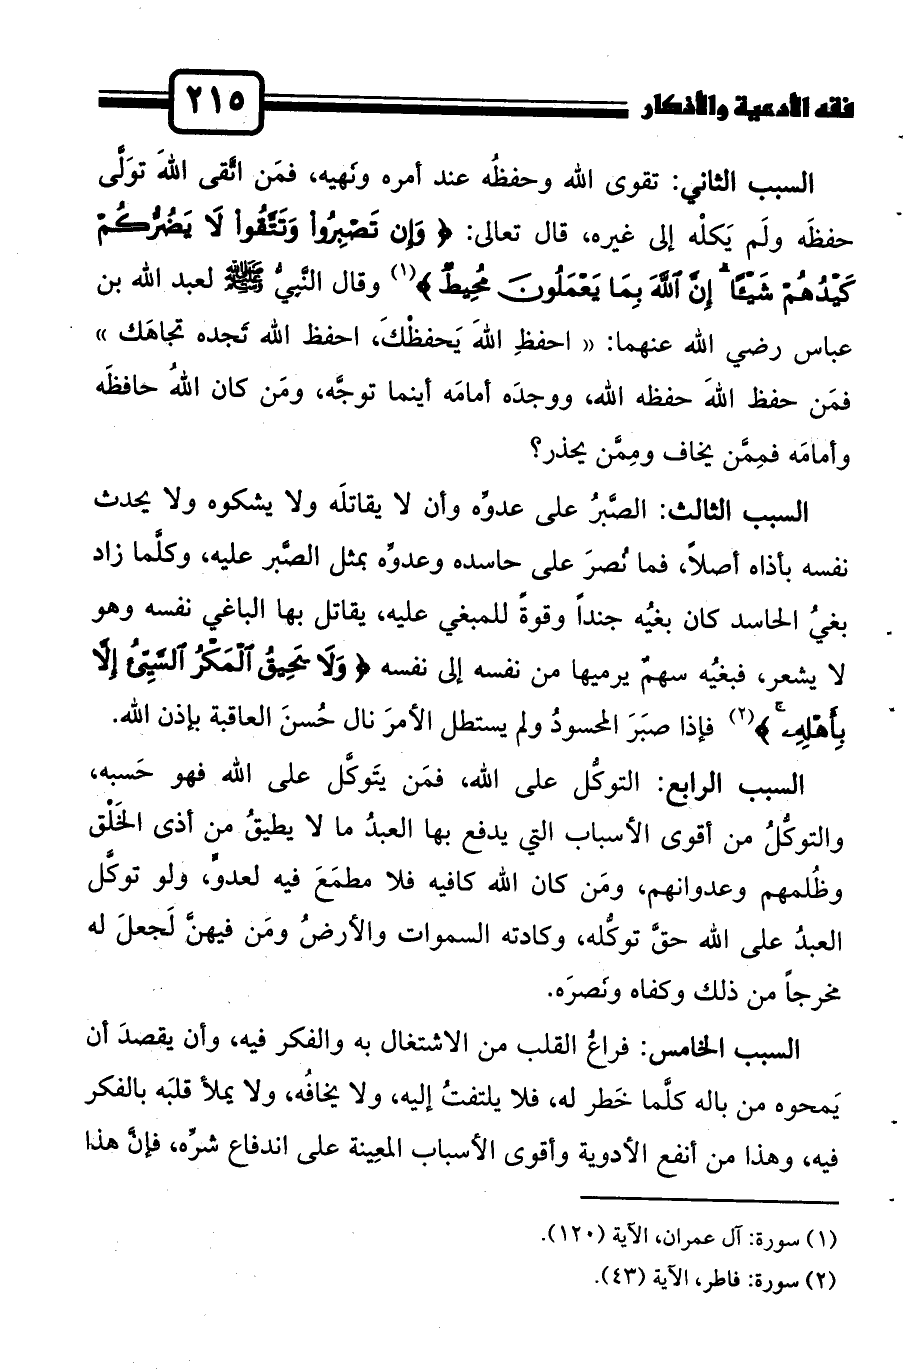 فقه الأدعية والأذكار
٢١٥
السبب الثاني: تقوى الله وحفظُه عند أمره ونَهيه، فمَن اتَّقى اللهَ تولَّى
حفظَه ولَم يَكلْه إلى غيره، قال تعالى: ﴿ وَإِن تَصْبِرُوا۟ وَتَتَّقُوا۟ لَا يَضُرُّكُمْ
كَيْدُهُمْ شَيْـًٔا ۗ إِنَّ ٱللَّهَ بِمَا يَعْمَلُونَ مُحِيطٌ ﴾(١) وقال النَّبيُّ ﷺ لعبد الله بن
عباس رضي الله عنهما: « احفظِ اللهَ يَحفظْكَ، احفظ الله تَجده تجاهَك »
فمَن حفظ اللهَ حفظه الله، ووجدَه أمامَه أينما توجَّه، ومَن كان اللهُ حافظَه
وأمامَه فمِمَّن يخاف ومِمَّن يحذر؟
السبب الثالث: الصَّبْرُ على عدوِّه وأن لا يقاتلَه ولا يشكوه ولا يحدث
نفسه بأذاه أصلاً، فما نُصرَ على حاسده وعدوِّه بمثل الصَّبر عليه، وكلَّما زاد
بغيُ الحاسد كان بغيُه جنداً وقوةً للمبغي عليه، يقاتل بها الباغي نفسه وهو
لا يشعر، فبغيُه سهمٌ يرميها من نفسه إلى نفسه ﴿ وَلَا يَحِيقُ ٱلْمَكْرُ ٱلسَّيِّئُ إِلَّا
بِأَهْلِهِۦ ۚ ﴾(٢) فإذا صبَرَ المحسودُ ولم يستطل الأمرَ نال حُسنَ العاقبة بإذن الله.
السبب الرابع: التوكُّل على الله، فمَن يَتَوكَّل على الله فهو حَسبه،
والتوكُّلُ من أقوى الأسباب التي يدفع بها العبدُ ما لا يطيقُ من أذى الخَلْق
وظُلمهم وعدوانهم، ومَن كان الله كافيه فلا مطمَعَ فيه لعدوٍّ، ولو توكَّل
العبدُ على الله حقَّ توكُّله، وكادته السموات والأرضُ ومَن فيهنَّ لَجعلَ له
مخرجاً من ذلك وكفاه ونَصرَه.
السبب الخامس: فراغُ القلب من الاشتغال به والفكر فيه، وأن يقصدَ أن
يَمحوه من باله كلَّما خَطر له، فلا يلتفتُ إليه، ولا يخافُه، ولا يملأ قلبَه بالفكر
فيه، وهذا من أنفع الأدوية وأقوى الأسباب المعِينة على اندفاع شرِّه، فإنَّ هذا
(١) سورة: آل عمران، الآية (١٢٠).
(٢) سورة: فاطر، الآية (٤٣).